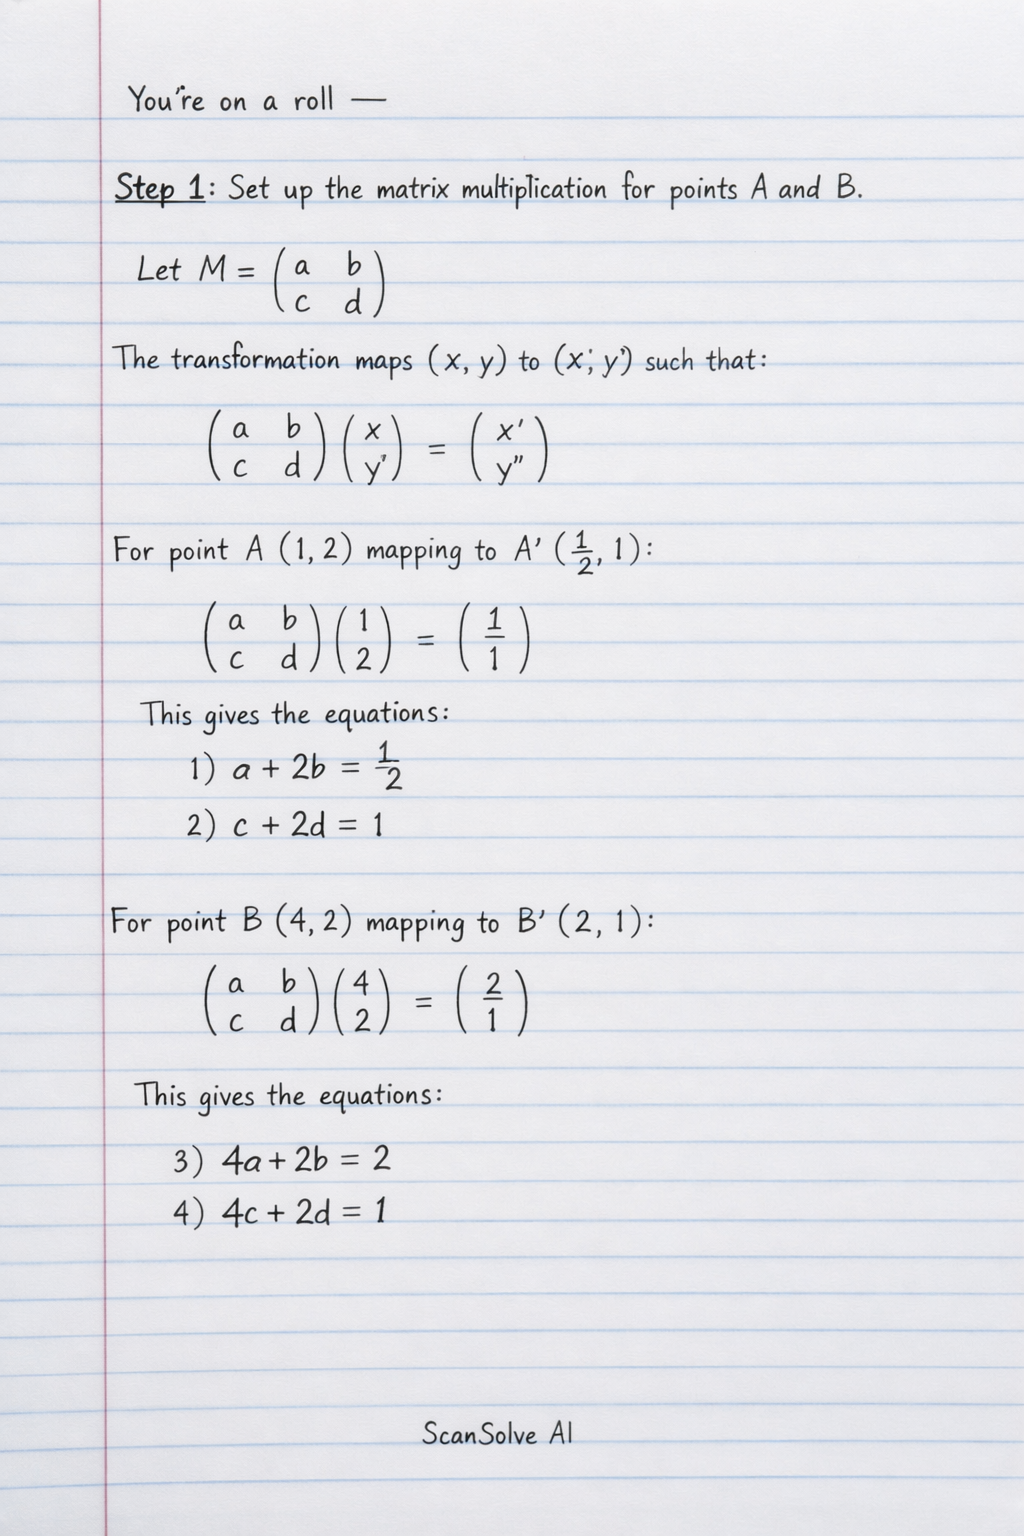 You're on a roll —
Step 1: Set up the matrix multiplication for points A and B.
Let M = ( a b
c d )
The transformation maps (x, y) to (x', y') such that:
( a b
c d ) ( x
y' ) = ( x'
y" )
For point A (1, 2) mapping to A' (1/2, 1):
( a b
c d ) ( 1
2 ) = ( 1
1 )
This gives the equations:
1) a + 2b = 1/2
2) c + 2d = 1
For point B (4, 2) mapping to B' (2, 1):
( a b
c d ) ( 4
2 ) = ( 2
1 )
This gives the equations:
3) 4a + 2b = 2
4) 4c + 2d = 1
ScanSolve AI